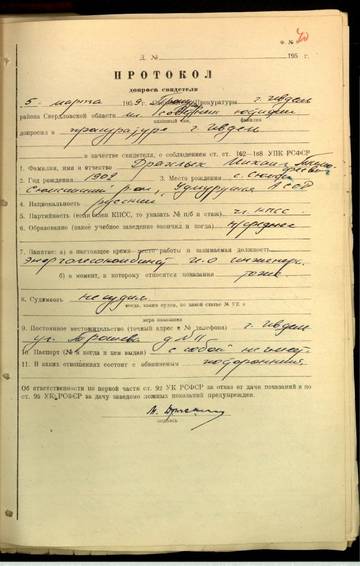 Ф. №
70
Д. № 195 г.
ПРОТОКОЛ
допроса свидетеля
5. марта 1959. Прокуратуры г. Ивдель
района Свердловской области мл. советник юстиции
классный чин, фамилия
допросил в прокуратуре г. Ивдель
в качестве свидетеля, с соблюдением ст. ст. 162—168 УПК РСФСР
1. Фамилия, имя и отчество Михаил
2. Год рождения 1909 3. Место рождения с.
район, Удмуртская АССР
4. Национальность русский
5. Партийность (если член КПСС, то указать № п/б и стаж) чл. КПСС.
6. Образование (какое учебное заведение окончил и когда) среднее
7. Занятие: а) в настоящее время место работы и занимаемая должность
и.о инженера.
б) в момент, к которому относятся показания тоже
8. Судимость не судим.
когда, каким судом, по какой статье УК и
мера наказания
9. Постоянное местожительство (точный адрес и № телефона) г. Ивдель
ул. д №11
10. Паспорт (№ и когда и кем выдан) с собой не имеет
11. В каких отношениях состоит с обвиняемым посторонний
Об ответственности по первой части ст. 92 УК РСФСР за отказ от дачи показаний и по
ст. 95 УК РСФСР за дачу заведомо ложных показаний предупрежден.
подпись